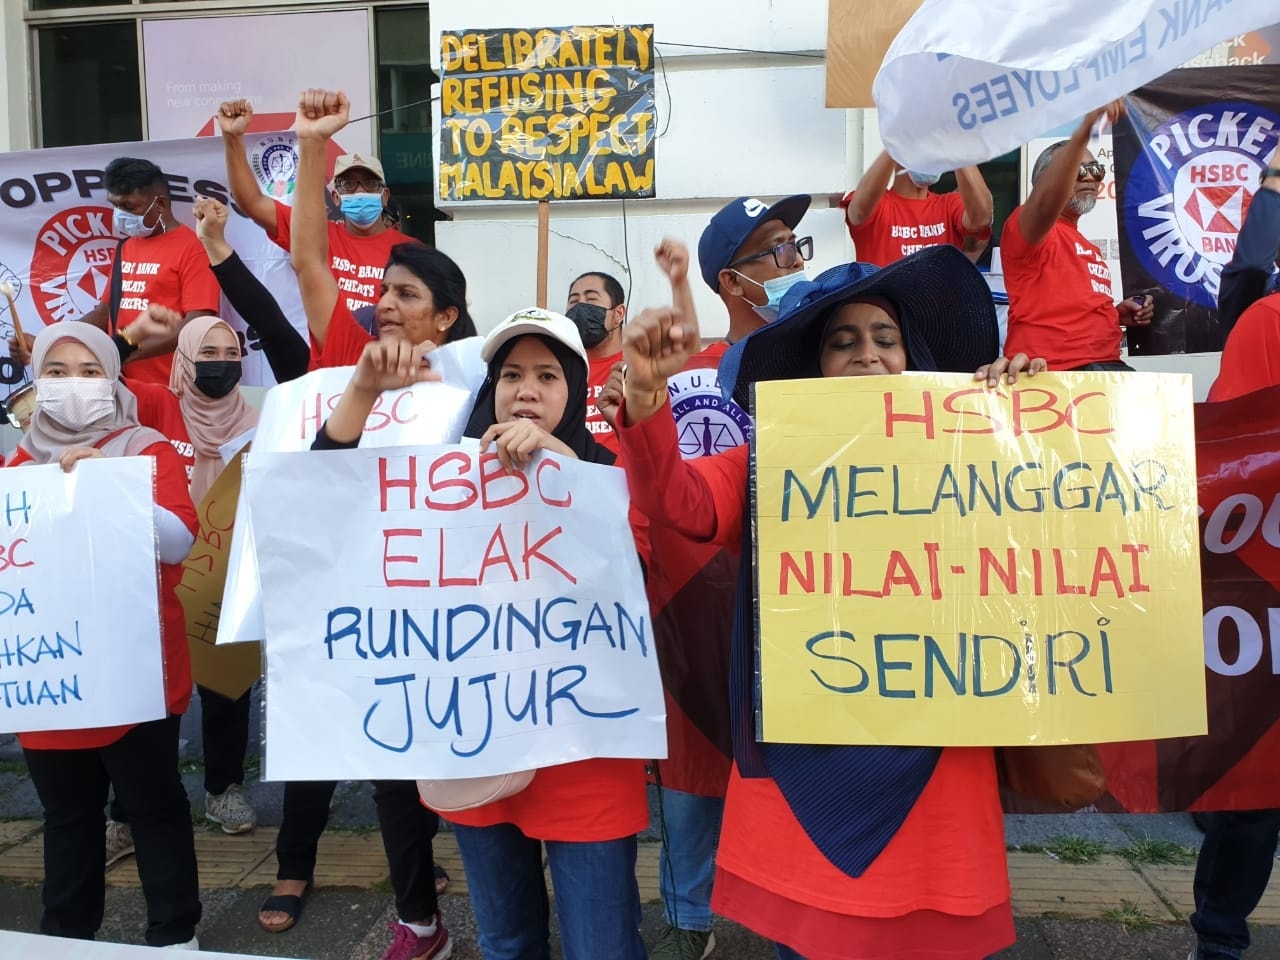 From making
new connections
DELIBRATELY
REFUSING
TO RESPECT
MALAYSIA LAW
BANK EMPLOYEES
OPPRESS
N.U.B.
PICKET
HSBC
BANK
VIRUS
PICKE
HSB
HSBC BANK
CHEATS
WORKERS
HSBC BANK
CHEATS
HSBC BANK
CHEATS
HSBC BANK
HSBC
HSBC
ELAK
RUNDINGAN
JUJUR
HSBC
MELANGGAR
NILAI-NILAI
SENDIRI
HSBC
N.U.B.
ALL AND ALL FO
H
BC
DA
HKAN
TUAN